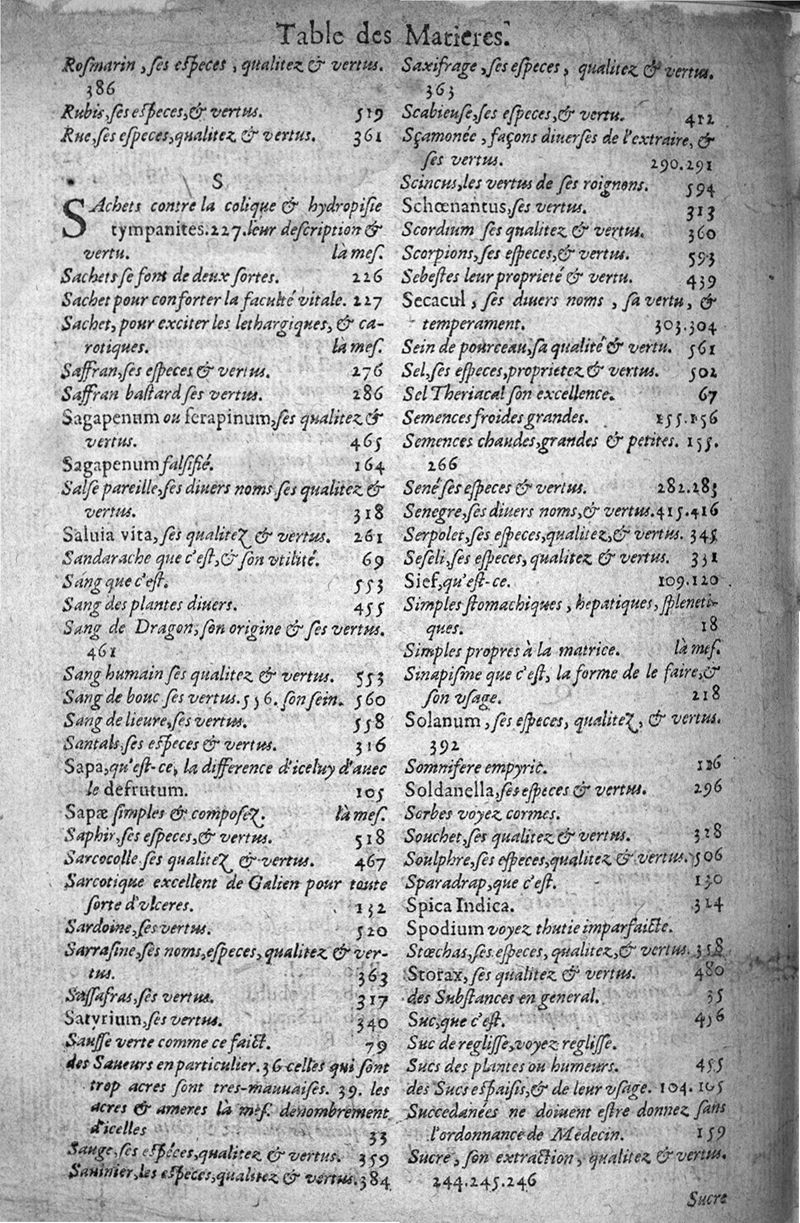 Table des Matieres.
Rosmarin, ses especes, qualitez & vertus.
386
Rubis, ses especes, & vertus. 519
Rue, ses especes, qualitez & vertus. 361
S
SAchets contre la colique & hydropisie
tympanites. 227. leur description &
vertu. là mes.
Sachets se font de deux sortes. 226
Sachet pour conforter la faculté vitale. 227
Sachet, pour exciter les lethargiques, & ca-
rotiques. là mes.
Saffran, ses especes & vertus. 276
Saffran bastard ses vertus. 286
Sagapenum ou serapinum, ses qualitez &
vertus. 465
Sagapenum falsifié. 164
Salse pareille, ses diuers noms, ses qualitez &
vertus. 318
Saluia vita, ses qualitez & vertus. 261
Sandarache que c'est, & son vtilité. 69
Sang que c'est. 553
Sang des plantes diuers. 455
Sang de Dragon, son origine & ses vertus.
461
Sang humain ses qualitez & vertus. 553
Sang de bouc ses vertus. 556. son sein. 560
Sang de lieure, ses vertus. 558
Santals, ses especes & vertus. 316
Sapa, qu'est-ce, la difference d'iceluy d'auec
le defrutum. 105
Sapæ simples & composez. là mes.
Saphir, ses especes, & vertus. 518
Sarcocolle, ses qualitez & vertus. 467
Sarcotique excellent de Galien pour toute
sorte d'vlceres. 132
Sardoine, ses vertus. 520
Sarrasine, ses noms, especes, qualitez & ver-
tus. 363
Sassafras, ses vertus. 317
Satyrium, ses vertus. 340
Sausse verte comme ce faict. 79
des Saueurs en particulier. 36 celles qui sont
trop acres sont tres-mauuaises. 39. les
acres & ameres là mes. denombrement
d'icelles 33
Sauge, ses especes, qualitez & vertus. 359
Sauinier, les especes, qualitez & vertus. 384
Saxifrage, ses especes, qualitez & vertus.
363
Scabieuse, ses especes, & vertu. 412
Sçamonée, façons diuerses de l'extraire, &
ses vertus. 290.291
Scincus, les vertus de ses roignons. 594
Schœnantus, ses vertus. 313
Scordium ses qualitez & vertus. 360
Scorpions, ses especes, & vertus. 593
Sebestes leur proprieté & vertu. 439
Secacul, ses diuers noms, sa vertu, &
temperament. 303.304
Sein de pourceau, sa qualité & vertu. 561
Sel, ses especes, proprietez & vertus. 502
Sel Theriacal son excellence. 67
Semences froides grandes. 155.156
Semences chaudes, grandes & petites. 155.
266
Sené ses especes & vertus. 282.283
Senegre, ses diuers noms, & vertus. 415.416
Serpolet, ses especes, qualitez, & vertus. 345
Seseli, ses especes, qualitez & vertus. 331
Sief, qu'est-ce. 109.120
Simples stomachiques, hepatiques, spleneti-
ques. 18
Simples propres à la matrice. là mes.
Sinapisme que c'est, la forme de le faire, &
son vsage. 218
Solanum, ses especes, qualitez, & vertus.
392
Somnifere empyric. 126
Soldanella, ses especes & vertus. 296
Sorbes voyez cormes.
Souchet, ses qualitez & vertus. 328
Soulphre, ses especes, qualitez & vertus. 506
Sparadrap, que c'est. 130
Spica Indica. 324
Spodium voyez thutie imparfaicte.
Stœchas, ses especes, qualitez, & vertus. 358
Storax, ses qualitez & vertus. 480
des Substances en general. 35
Suc, que c'est. 456
Suc de reglisse, voyez reglisse.
Sucs des plantes ou humeurs. 455
des Sucs espaisis, & de leur vsage. 104.105
Succedanées ne doiuent estre donnez sans
l'ordonnance de Medecin. 159
Sucre, son extraction, qualitez & vertus.
244.245.246
Sucre